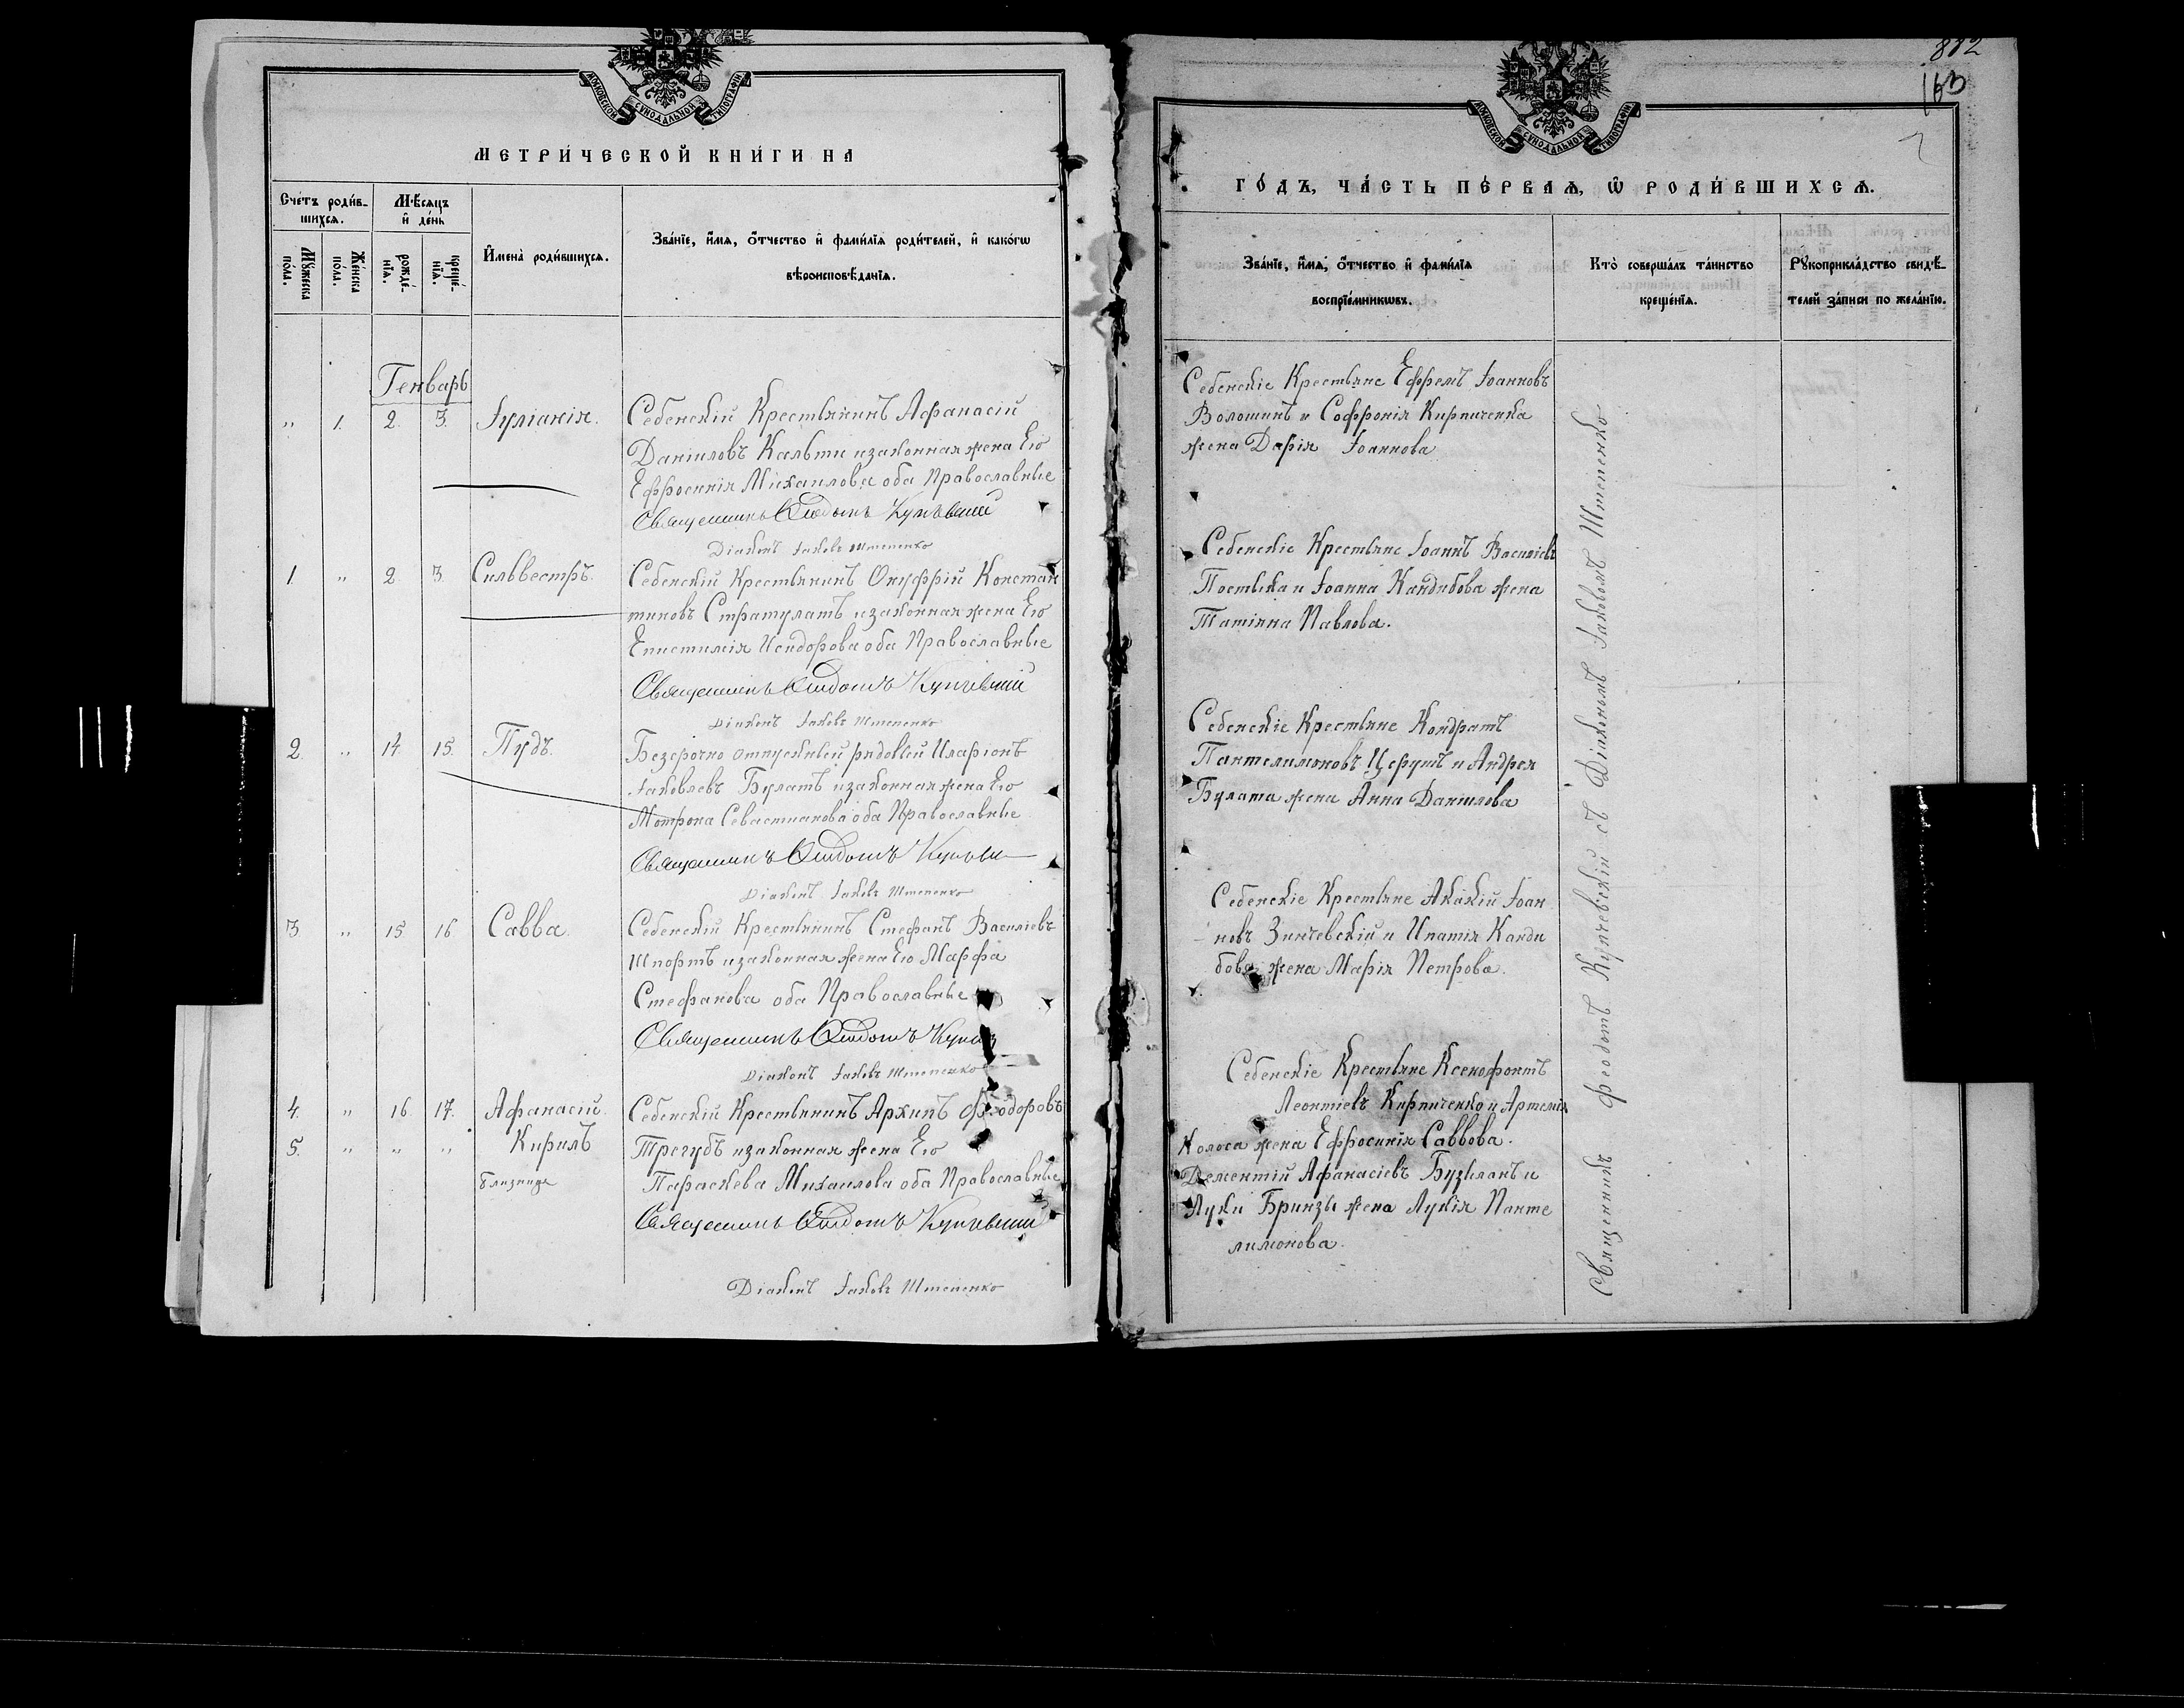 МОСКОВСКОЙ СѴНОДАЛЬНОЙ ТИПОГРАФІИ
МЕТРИ́ЧЕСКОЙ КНИ́ГИ НА
Сче́тъ роди́в-
шихся.
Мꙋ́жеска
по́ла.
Же́нска
по́ла.
Мѣ́сяцъ
и҆ де́нь
рожде́-
нїя.
креще́-
нїя.
И҆мена̀ роди́вшихся.
Зва́нїе, и҆́мя, ѻ҆́тчество и҆ фами́лїя роди́телей, и҆ како́гѡ
вѣроисповѣ́данїя.
Генварь
" 1. 2. 3. Іуліанія. Себенскій Крестьянинъ Афанасій
Даніиловъ Кальти изаконная жена Его
Ефросинія Михаилова оба Православные
Священникъ Ѳеодотъ Купчевскій
Діаконъ Іаковъ Штепенко
1. " 2. 3. Сильвестръ. Себенскій Крестьянинъ Онуфрій Констан
тиновъ Стратулатъ изаконная жена Его
Епистимія Исидорова оба Православные
Священникъ Ѳеодотъ Купчевскій
Діаконъ Іаковъ Штепенко
2. " 14 15. Пудъ. Безсрочно отпускный рядовый Иларіонъ
Іаковлевъ Булатъ изаконная жена Его
Мотрона Севастианова оба Православные
Священникъ Ѳеодотъ
Діаконъ Іаковъ Штепенко
3 " 15 16 Савва. Себенскій Крестьянинъ Стефанъ Василіевъ
Шпортъ изаконная жена Его Марфа
Стефанова оба Православные
Священникъ Ѳеодотъ
Діаконъ Іаковъ Штепенко
4. " 16 17. Афанасій. Себенскій Крестьянинъ Архипъ Феодоровъ
5. " " " Кирилъ Трегубъ изаконная жена Его
близнецы Параскева Михаилова оба Православные
Священникъ Ѳеодотъ Купчевскій
Діаконъ Іаковъ Штепенко
882
163
МОСКОВСКОЙ СѴНОДАЛЬНОЙ ТИПОГРАФІИ
ГО́ДЪ, ЧА́СТЬ ПЕ́РВАЯ, Ѡ҆ РОДИ́ВШИХСЯ.
Зва́нїе, и҆́мя, ѻ҆́тчество и҆ фами́лїя
воспрїе́мникѡвъ.
Кто̀ соверша́лъ та́инство
креще́нїя.
Рꙋкоприкла́дство свидѣ́-
телей за́писи по жела́нїю.
Себенскіе Крестьяне Ефремъ Іоанновъ
Волошинъ и Софронія Кирпиченка
жена Дарія Іоаннова
Себенскіе Крестьяне Іоаннъ Василіевъ
Постыка и Іоанна Кандибова жена
Татіяна Павлова.
Себенскіе Крестьяне Кондратъ
Пантелимоновъ Церушъ и Андрея
Булата жена Анна Даніилова
Себенскіе Крестьяне Акакій Іоан
новъ Зинчевскій и Ипатія Канди
бова жена Марія Петрова.
Себенскіе Крестьяне Ксенофонтъ
Леонтіевъ Кирпиченко и Артемія
Колоса жена Ефросинія Саввова.
Дементій Афанасіевъ Бузиланъ и
Луки Бринзы жена Лукія Панте
лимонова.
Священникъ Феодотъ Купчевскій съ Діакономъ Іаковомъ Штепенко